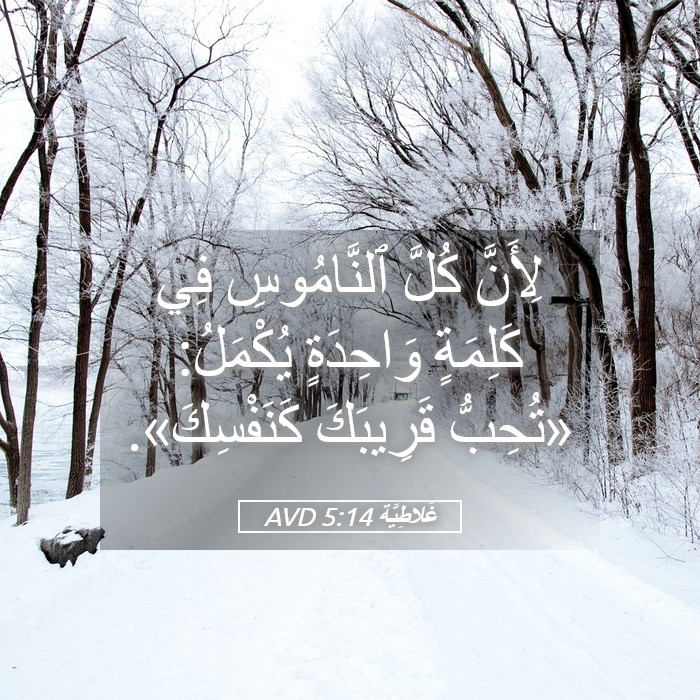 لِأَنَّ كُلَّ ٱلنَّامُوسِ فِي
كَلِمَةٍ وَاحِدَةٍ يُكْمَلُ:
«تُحِبُّ قَرِيبَكَ كَنَفْسِكَ».
غَلاطِيَّة 5:14 AVD